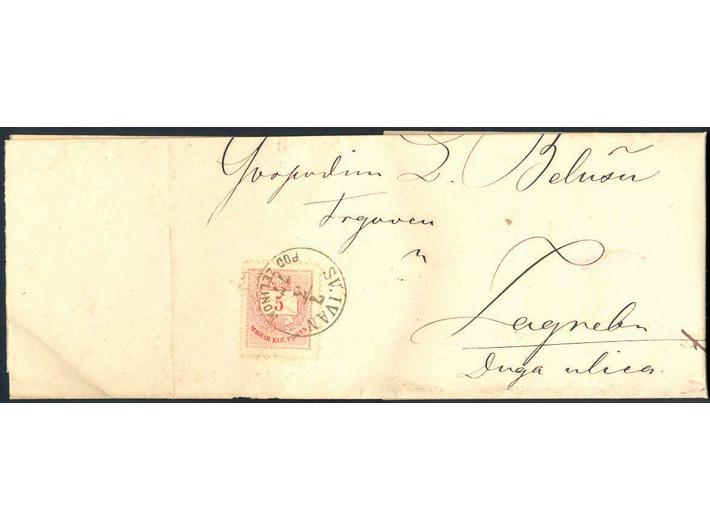 Gospodinu L. Belušu
Trgovcu
u
Zagrebu
Duga ulica.
SV. IVAN
POD ZELINOM
5
MAGYAR KIR. POSTA